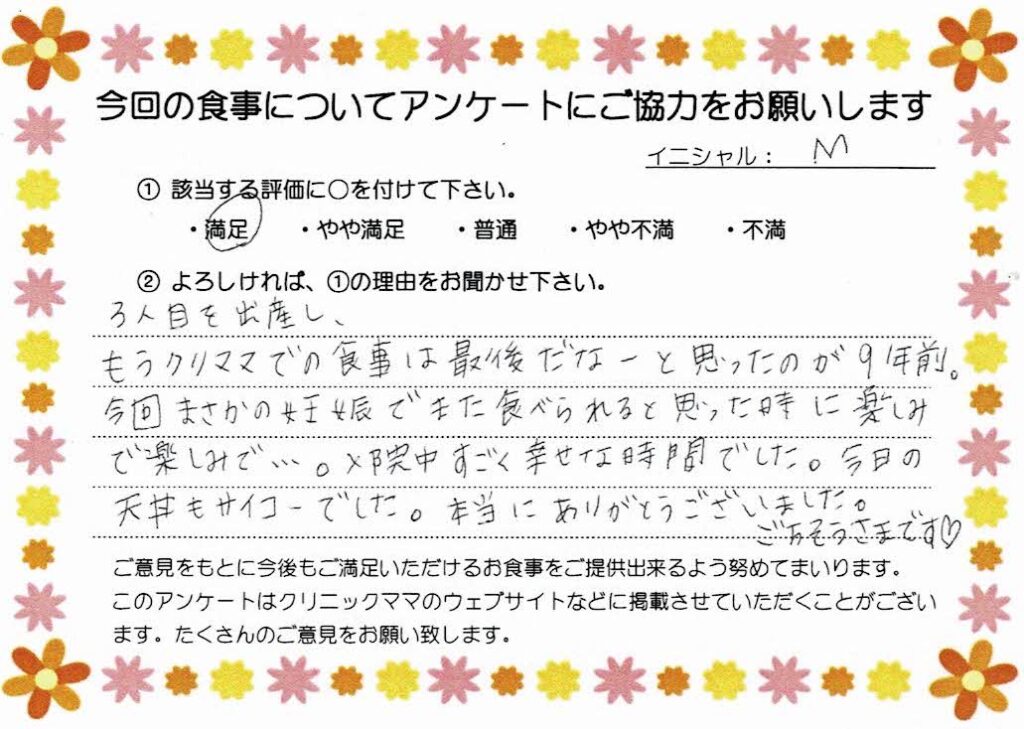 今回の食事についてアンケートにご協力をお願いします
イニシャル： M
① 該当する評価に○を付けて下さい。
・満足 ・やや満足 ・普通 ・やや不満 ・不満
② よろしければ、①の理由をお聞かせ下さい。
3人目を出産し、
もうクリママでの食事は最後だなーと思ったのが9年前。
今回まさかの妊娠でまた食べられると思った時に楽しみ
で楽しみで…。入院中すごく幸せな時間でした。今日の
天丼もサイコーでした。本当にありがとうございました。
ごちそうさまです♡
ご意見をもとに今後もご満足いただけるお食事をご提供出来るよう努めてまいります。
このアンケートはクリニックママのウェブサイトなどに掲載させていただくことがござい
ます。たくさんのご意見をお願い致します。